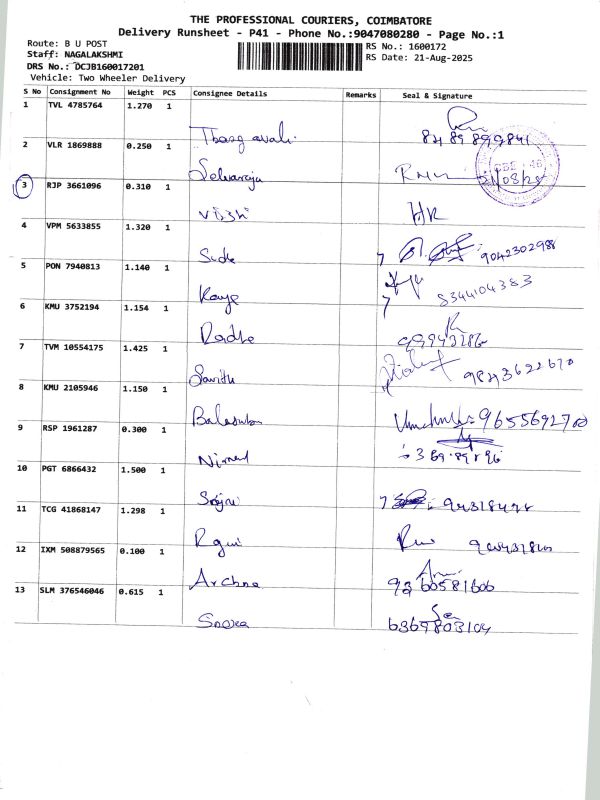 THE PROFESSIONAL COURIERS, COIMBATORE
Delivery Runsheet - P41 - Phone No.:9047080280 - Page No.:1
Route: B U POST
RS No.: 1600172
Staff: NAGALAKSHMI
RS Date: 21-Aug-2025
DRS No.: DCJB160017201
Vehicle: Two Wheeler Delivery
S No Consignment No Weight PCS Consignee Details Remarks Seal & Signature
1 TVL 4785764 1.270 1
2 VLR 1869888 0.250 1
Selvaraja
3 RJP 3661096 0.310 1
HR
4 VPM 5633855 1.320 1
9042302988
5 PON 7940813 1.140 1
8344104383
6 KMU 3752194 1.154 1
Radha
7 TVM 10554175 1.425 1
8 KMU 2105946 1.150 1
9655692700
9 RSP 1961287 0.300 1
Nirmal
10 PGT 6866432 1.500 1
11 TCG 41868147 1.298 1
12 IXM 508879565 0.100 1
Archna 9360581606
13 SLM 376546046 0.615 1
6369803104